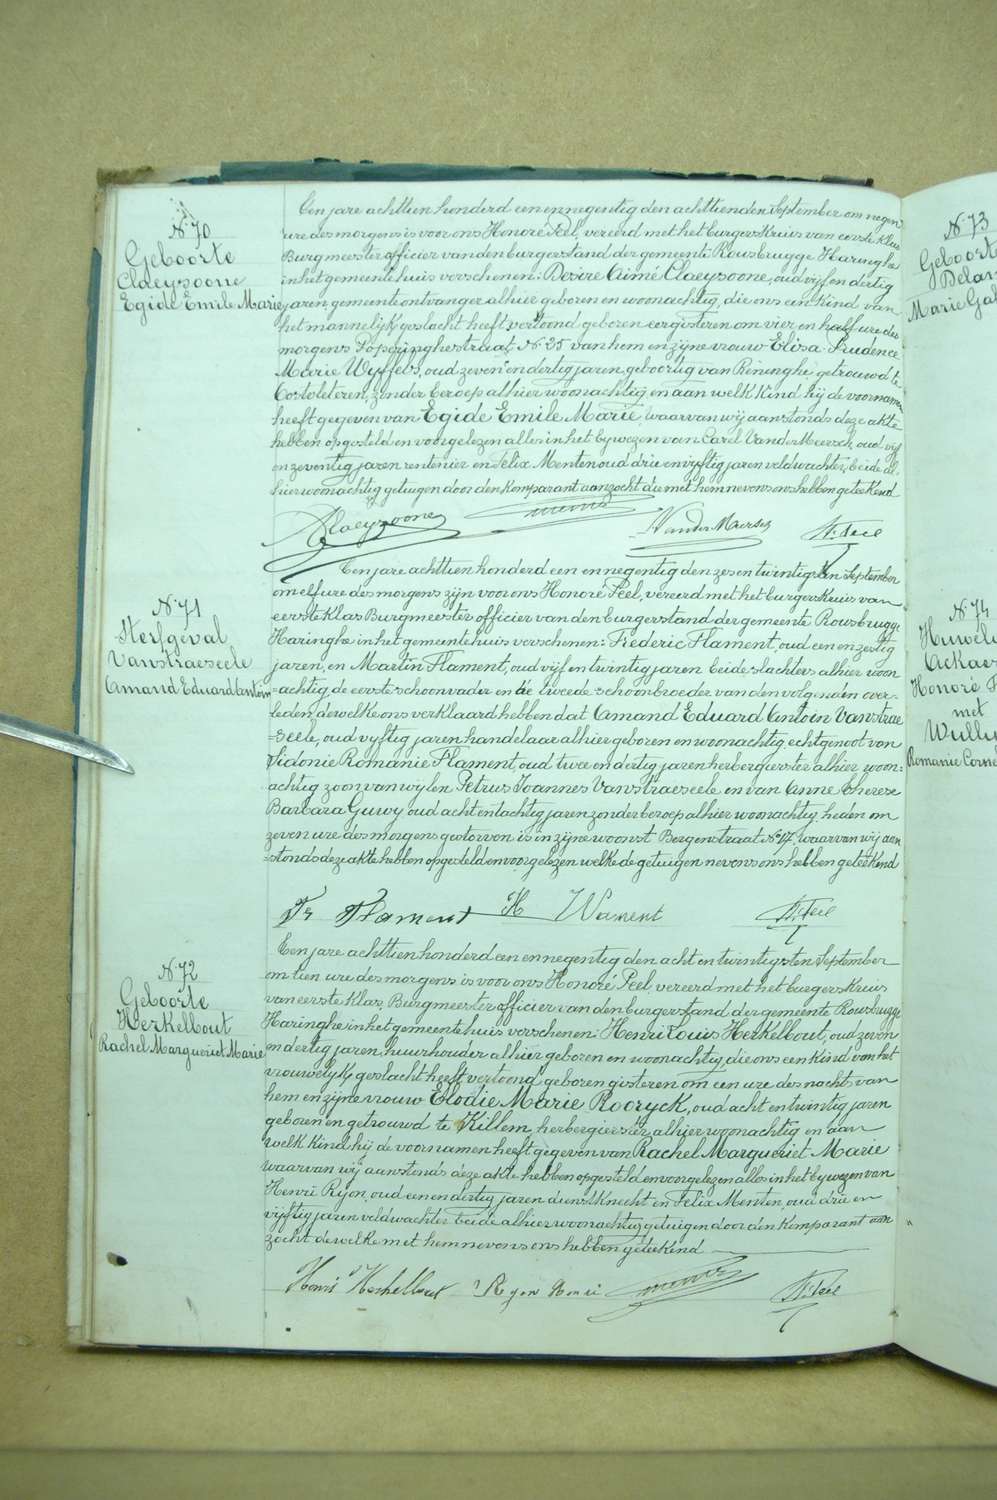 N° 70
Geboorte
Claeysoone
Egide Emile Marie
Een jare achttien honderd een en negentig den achttienden September om negen
ure des morgens is voor ons Honoré Peel, vereerd met het burgerskruis van eerste klas
Burgmeester officier van den burgerstand der gemeente Rousbrugge Haringhe
in het gemeentehuis verschenen: Desiré Aimé Claeysoone, oud vijf en dertig
jaren, gemeente ontvanger alhier geboren en woonachtig, die ons een kind van
het mannelijk geslacht heeft vertoond geboren eergisteren om vier en half ure des
morgens Poperinghestraat N° 25 van hem en zijne vrouw Elisa Prudence
Marie Wyffels, oud zeven en dertig jaren, geboortig van Reninghe getrouwd te
Oostvleteren, zonder beroep alhier woonachtig en aan welk kind hij de voornamen
heeft gegeven van Egide Emile Marie, waarvan wij aanstonds deze akte
hebben opgesteld en voorgelezen alles in het bywezen van Carel Vander Meersch, oud vijf
en zeventig jaren rentenier en Felix Menten oud drie en vyftig jaren veldwachter, beide al-
hier woonachtig getuigen door den komparant aanzocht die met hem nevens ons hebben geteekend
Claeysoone Menten VanderMeersch H. Peel
N° 71
Sterfgeval
Vanstraeseele
Amand Eduard Antoin
Een jare achttien honderd een en negentig den zes en twintigsten September
om elf ure des morgens zijn voor ons Honoré Peel, vereerd met het burgerskruis van
eerste klas Burgmeester officier van den burgerstand der gemeente Rousbrugge
Haringhe in het gemeentehuis verschenen: Frederic Flament, oud een en zestig
jaren, en Martin Flament, oud vijf en twintig jaren beide slachters alhier woon
=achtig, de eerste schoonvader en de tweede schoonbroeder van den volgenden over-
leden, dewelke ons verklaard hebben dat Amand Eduard Antoin Vanstrae
=seele, oud vyftig jaren handelaar alhier geboren en woonachtig, echtgenoot van
Sidonie Romanie Flament, oud twee en dertig jaren herbergierster alhier woon=
achtig zoon van wijlen Petrus Joannes Vanstraeseele en van Anne Therese
Barbara Guwy oud acht en tachtig jaren zonder beroep alhier woonachtig, heden om
zeven ure des morgens gestorven is in zijne woonst Bergenstraat N° 17, waarvan wij aan
=stonds deze akte hebben opgesteld en voorgelezen welke de getuigen nevens ons hebben geteekend
Fr Flament H. Peel
N° 72
Geboorte
Herkelbout
Rachel Margueriet Marie
Een jare achttien honderd een en negentig den acht en twintigsten September
om tien ure des morgens is voor ons Honoré Peel, vereerd met het burgerskruis
van eerste klas, Burgmeester officier van den burgerstand der gemeente Rousbrugge
Haringhe in het gemeentehuis verschenen: Henri Louis Herkelbout, oud zeven
en dertig jaren, huurhouder alhier geboren en woonachtig, die ons een kind van het
vrouwelijk geslacht heeft vertoond geboren gisteren om een ure des nachts van
hem en zijne vrouw Elodie Marie Rooryck, oud acht en twintig jaren
geboren en getrouwd te Killem, herbergierster, alhier woonachtig en aan
welk kind hij de voornamen heeft gegeven van Rachel Margueriet Marie
waarvan wij aanstonds deze akte hebben opgesteld en voorgelezen alles in het bywezen van
Henri Ryon, oud een en dertig jaren dienstknecht en Felix Menten, oud drie en
vijftig jaren veldwachter beide alhier woonachtig getuigen door den komparant aan
zocht dewelke met hem nevens ons hebben geteekend
Henri Herkelbout Ryon Henri Menten H. Peel
N° 73
Geboorte
Marie
N° 74
Honoré
met
Romanie